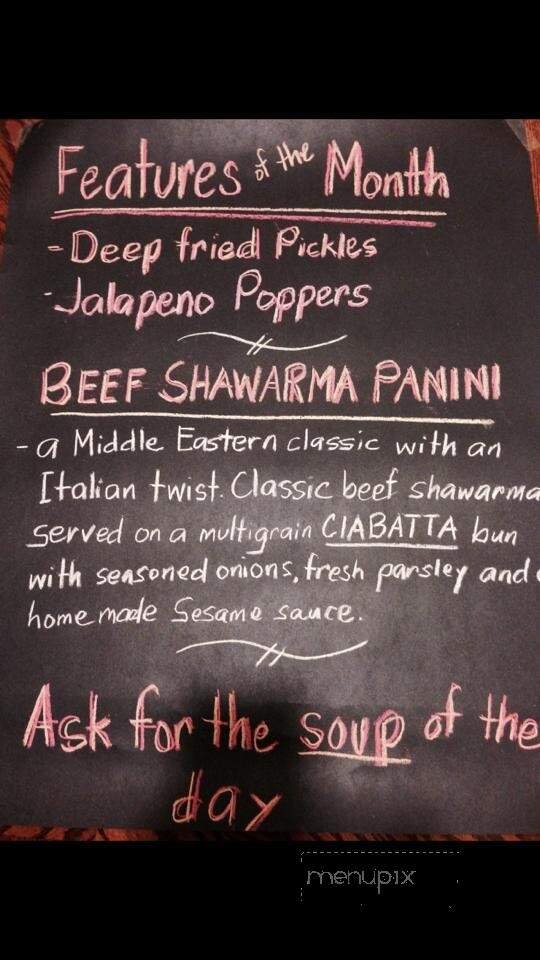 Features of the Month
- Deep fried Pickles
- Jalapeno Poppers
BEEF SHAWARMA PANINI
- a Middle Eastern classic with an
Italian twist. Classic beef shawarma
served on a multigrain CIABATTA bun
with seasoned onions, fresh parsley and
home made Sesame sauce.
Ask for the soup of the
day
menupix